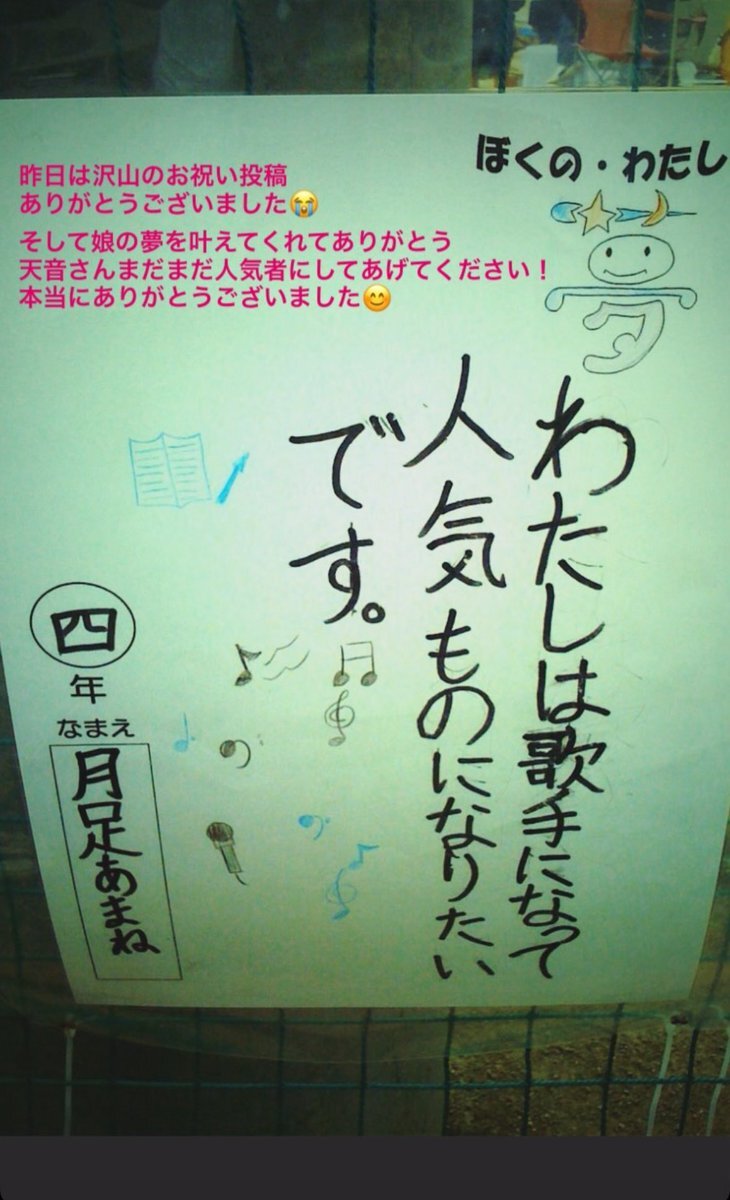 昨日は沢山のお祝い投稿
ありがとうございました😭
そして娘の夢を叶えてくれてありがとう
天音さんまだまだ人気者にしてあげてください！
本当にありがとうございました😊
ぼくの・わたし
夢
わたしは歌手になって
人気ものになりたい
です。
四
年
なまえ
月足あまね